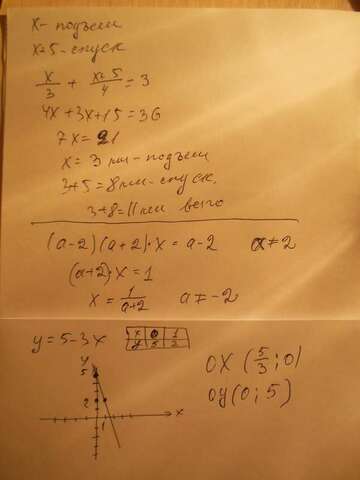 x - подъем
x+5 - спуск
x/3 + x+5/4 = 3
4x+3x+15=36
7x=21
x = 3 км - подъем
3+5=8 км - спуск.
3+8=11 км всего
(a-2)(a+2)·x = a-2 a≠2
(a+2)·x=1
x = 1/a+2 a≠-2
y=5-3x
x 0 1
y 5 2
OX (5/3; 0)
OY (0; 5)
y
5
2
1
x